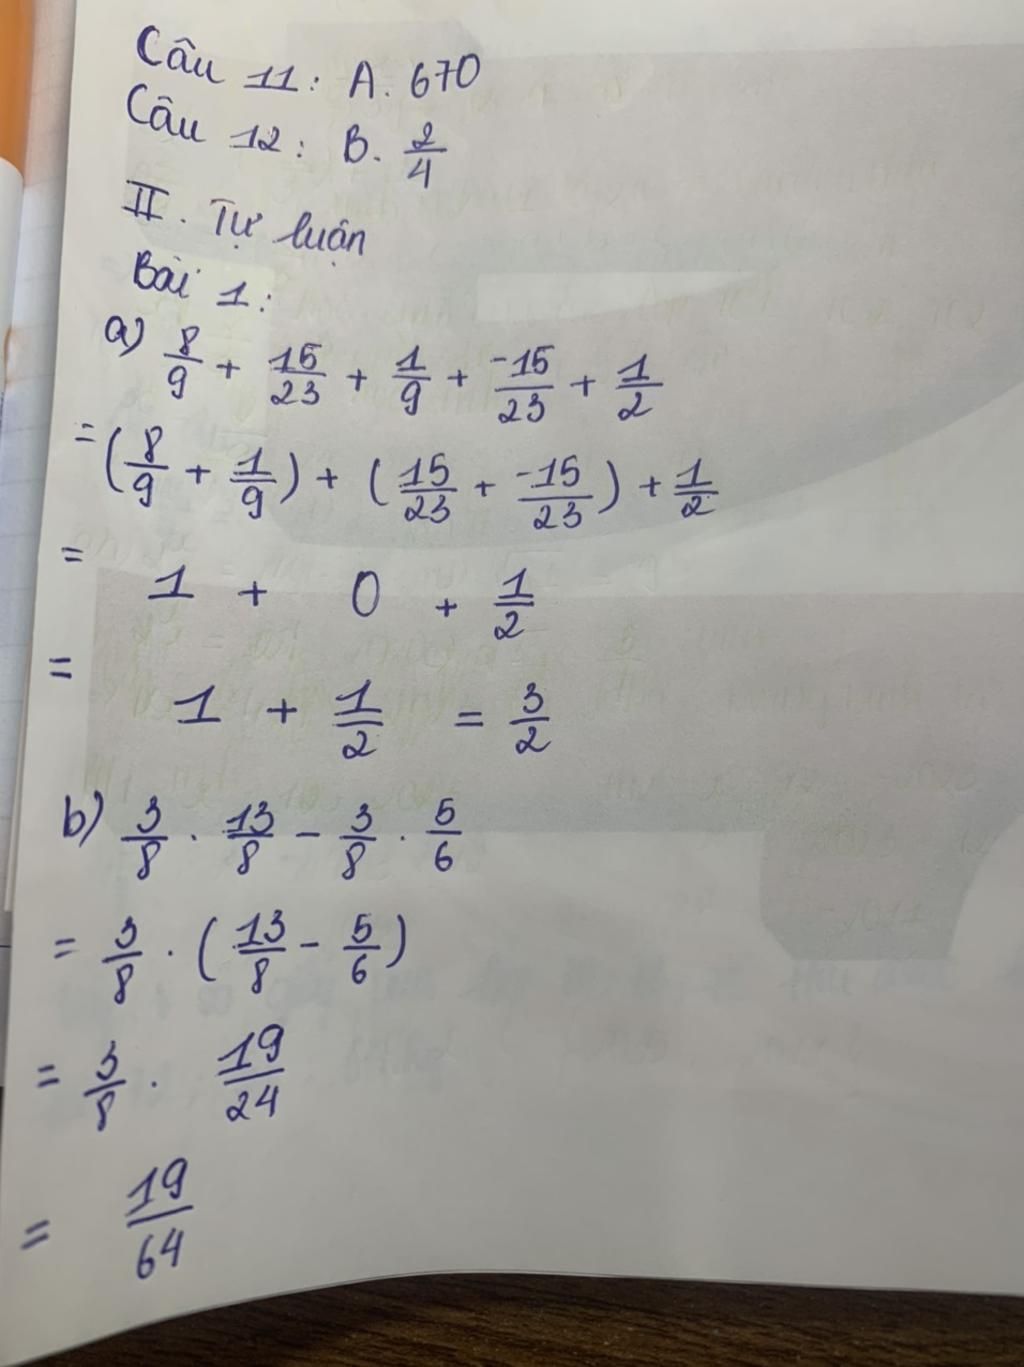 Câu 11: A. 670
Câu 12: B. 2/4
II. Tự luận
Bài 1:
a) 8/9 + 15/23 + 1/9 + -15/23 + 1/2
= (8/9 + 1/9) + (15/23 + -15/23) + 1/2
= 1 + 0 + 1/2
= 1 + 1/2 = 3/2
b) 3/8 . 13/8 - 3/8 . 5/6
= 3/8 . (13/8 - 5/6)
= 3/8 . 19/24
= 19/64